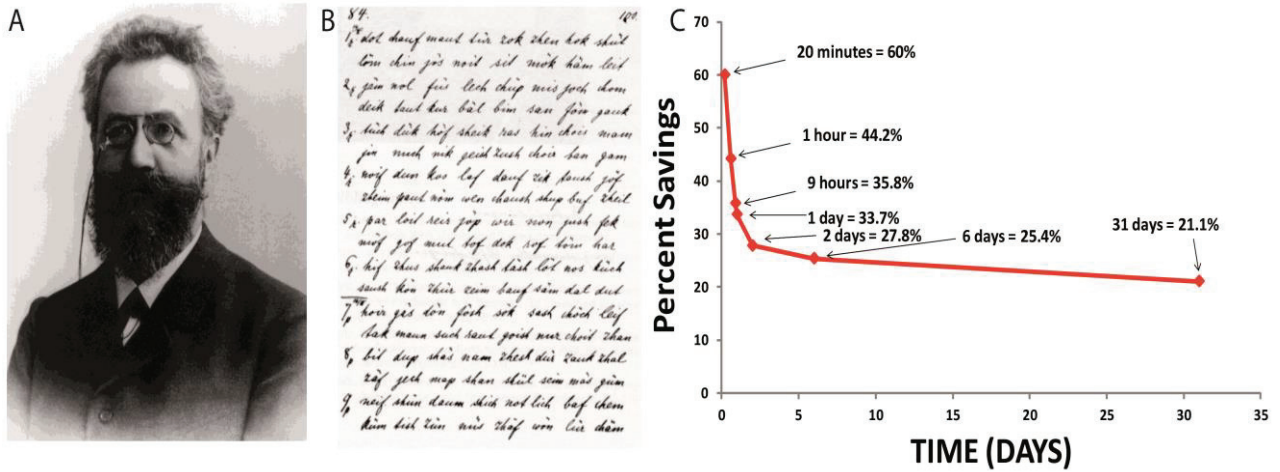 A
B
84.
dot hauf maut tür zok zhen hok shül
töm chin jös noit sit mök häm leit
2. jäm nol füs lech chüp mis joch chom
deik taut kur bäl bim san föm gauk
3. tüch dük höf sheik ras hin chois mam
jin nuch nik geish zush choir ban gam
4. noif dun kos laf dauf zik taush jöf
zheim paut nöm wen chaush shup buf zheil
5. par loit reis jöp wir non jush fek
möf gof mut tof dok rof töm har
6. hif zhus shauk zhash täsh löt nos küch
saush kön zhür zeim bauf säm dal dut
7. hoir gäs tön fösh sök sash chöch leif
tak maun such raut goist nur choit zhan
8. bit dup shäs nam zhesh dür zauk zhal
zäf jesh map shan shül seim mäs güm
9. neif shün daum shich not lich baf chem
küm tish zün mis zhäf wön lür chäm
C
Percent Savings
70
60
50
40
30
20
10
0
20 minutes = 60%
1 hour = 44.2%
9 hours = 35.8%
1 day = 33.7%
2 days = 27.8%
6 days = 25.4%
31 days = 21.1%
0 5 10 15 20 25 30 35
TIME (DAYS)